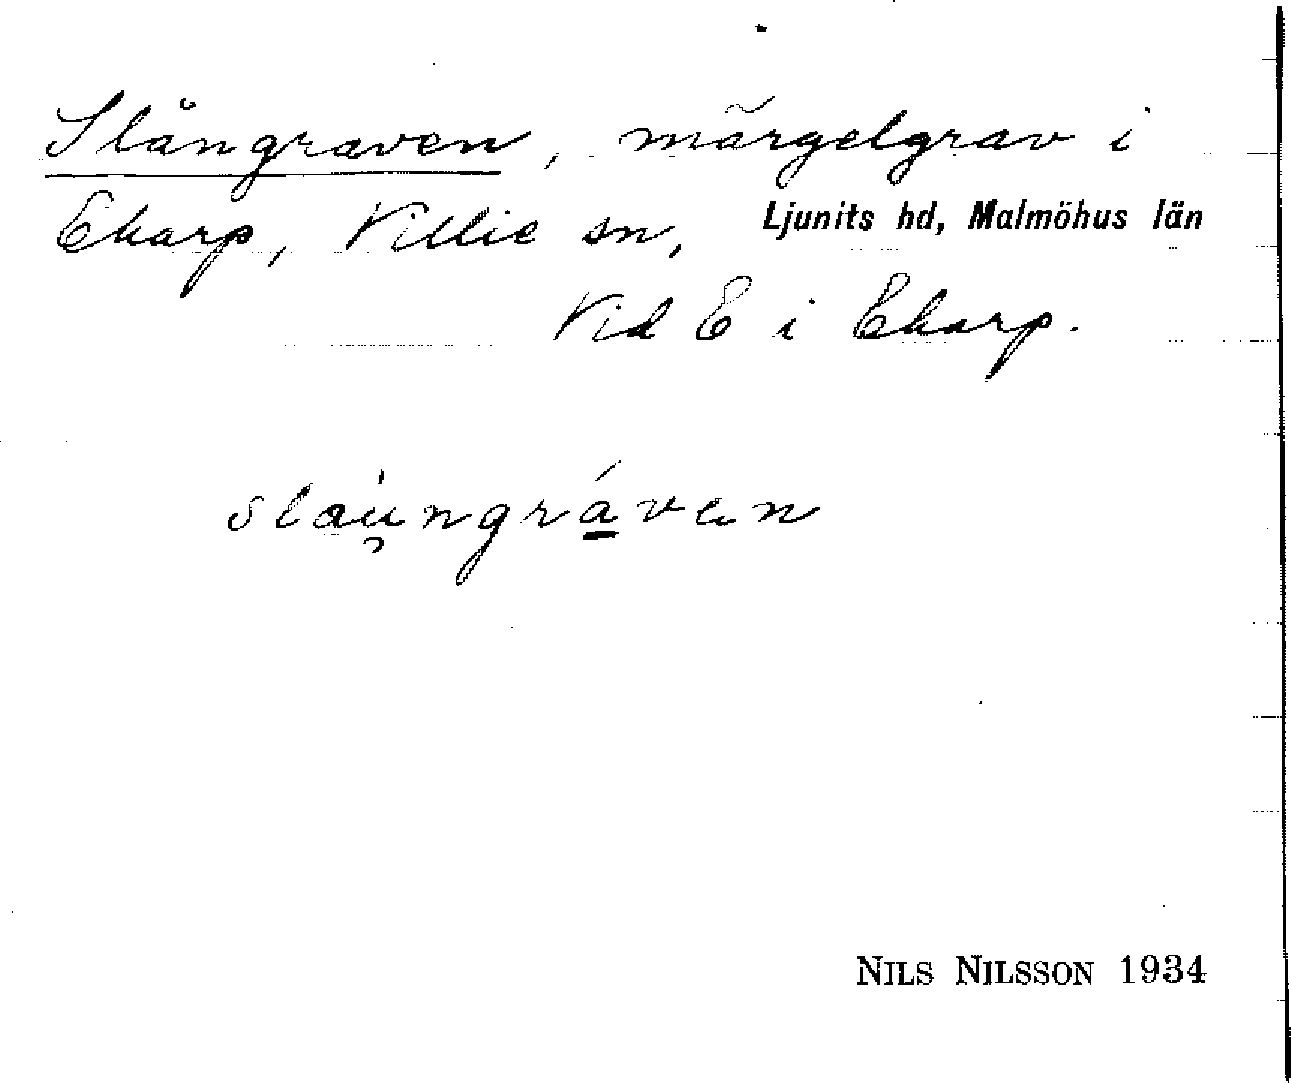 Slångraven, märgelgrav i
Ekarp, Villie sn, Ljunits hd, Malmöhus län
Vid E i Ekarp.
slau̇ngráven
NILS NILSSON 1934